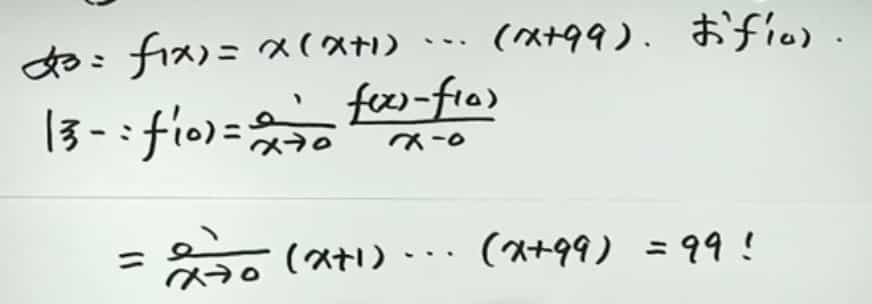 如：f(x) = x(x+1) ⋯ (x+99). 求f'(0).
法一：f'(0) = lim x→0 f(x)-f(0) / x-0
= lim x→0 (x+1) ⋯ (x+99) = 99!